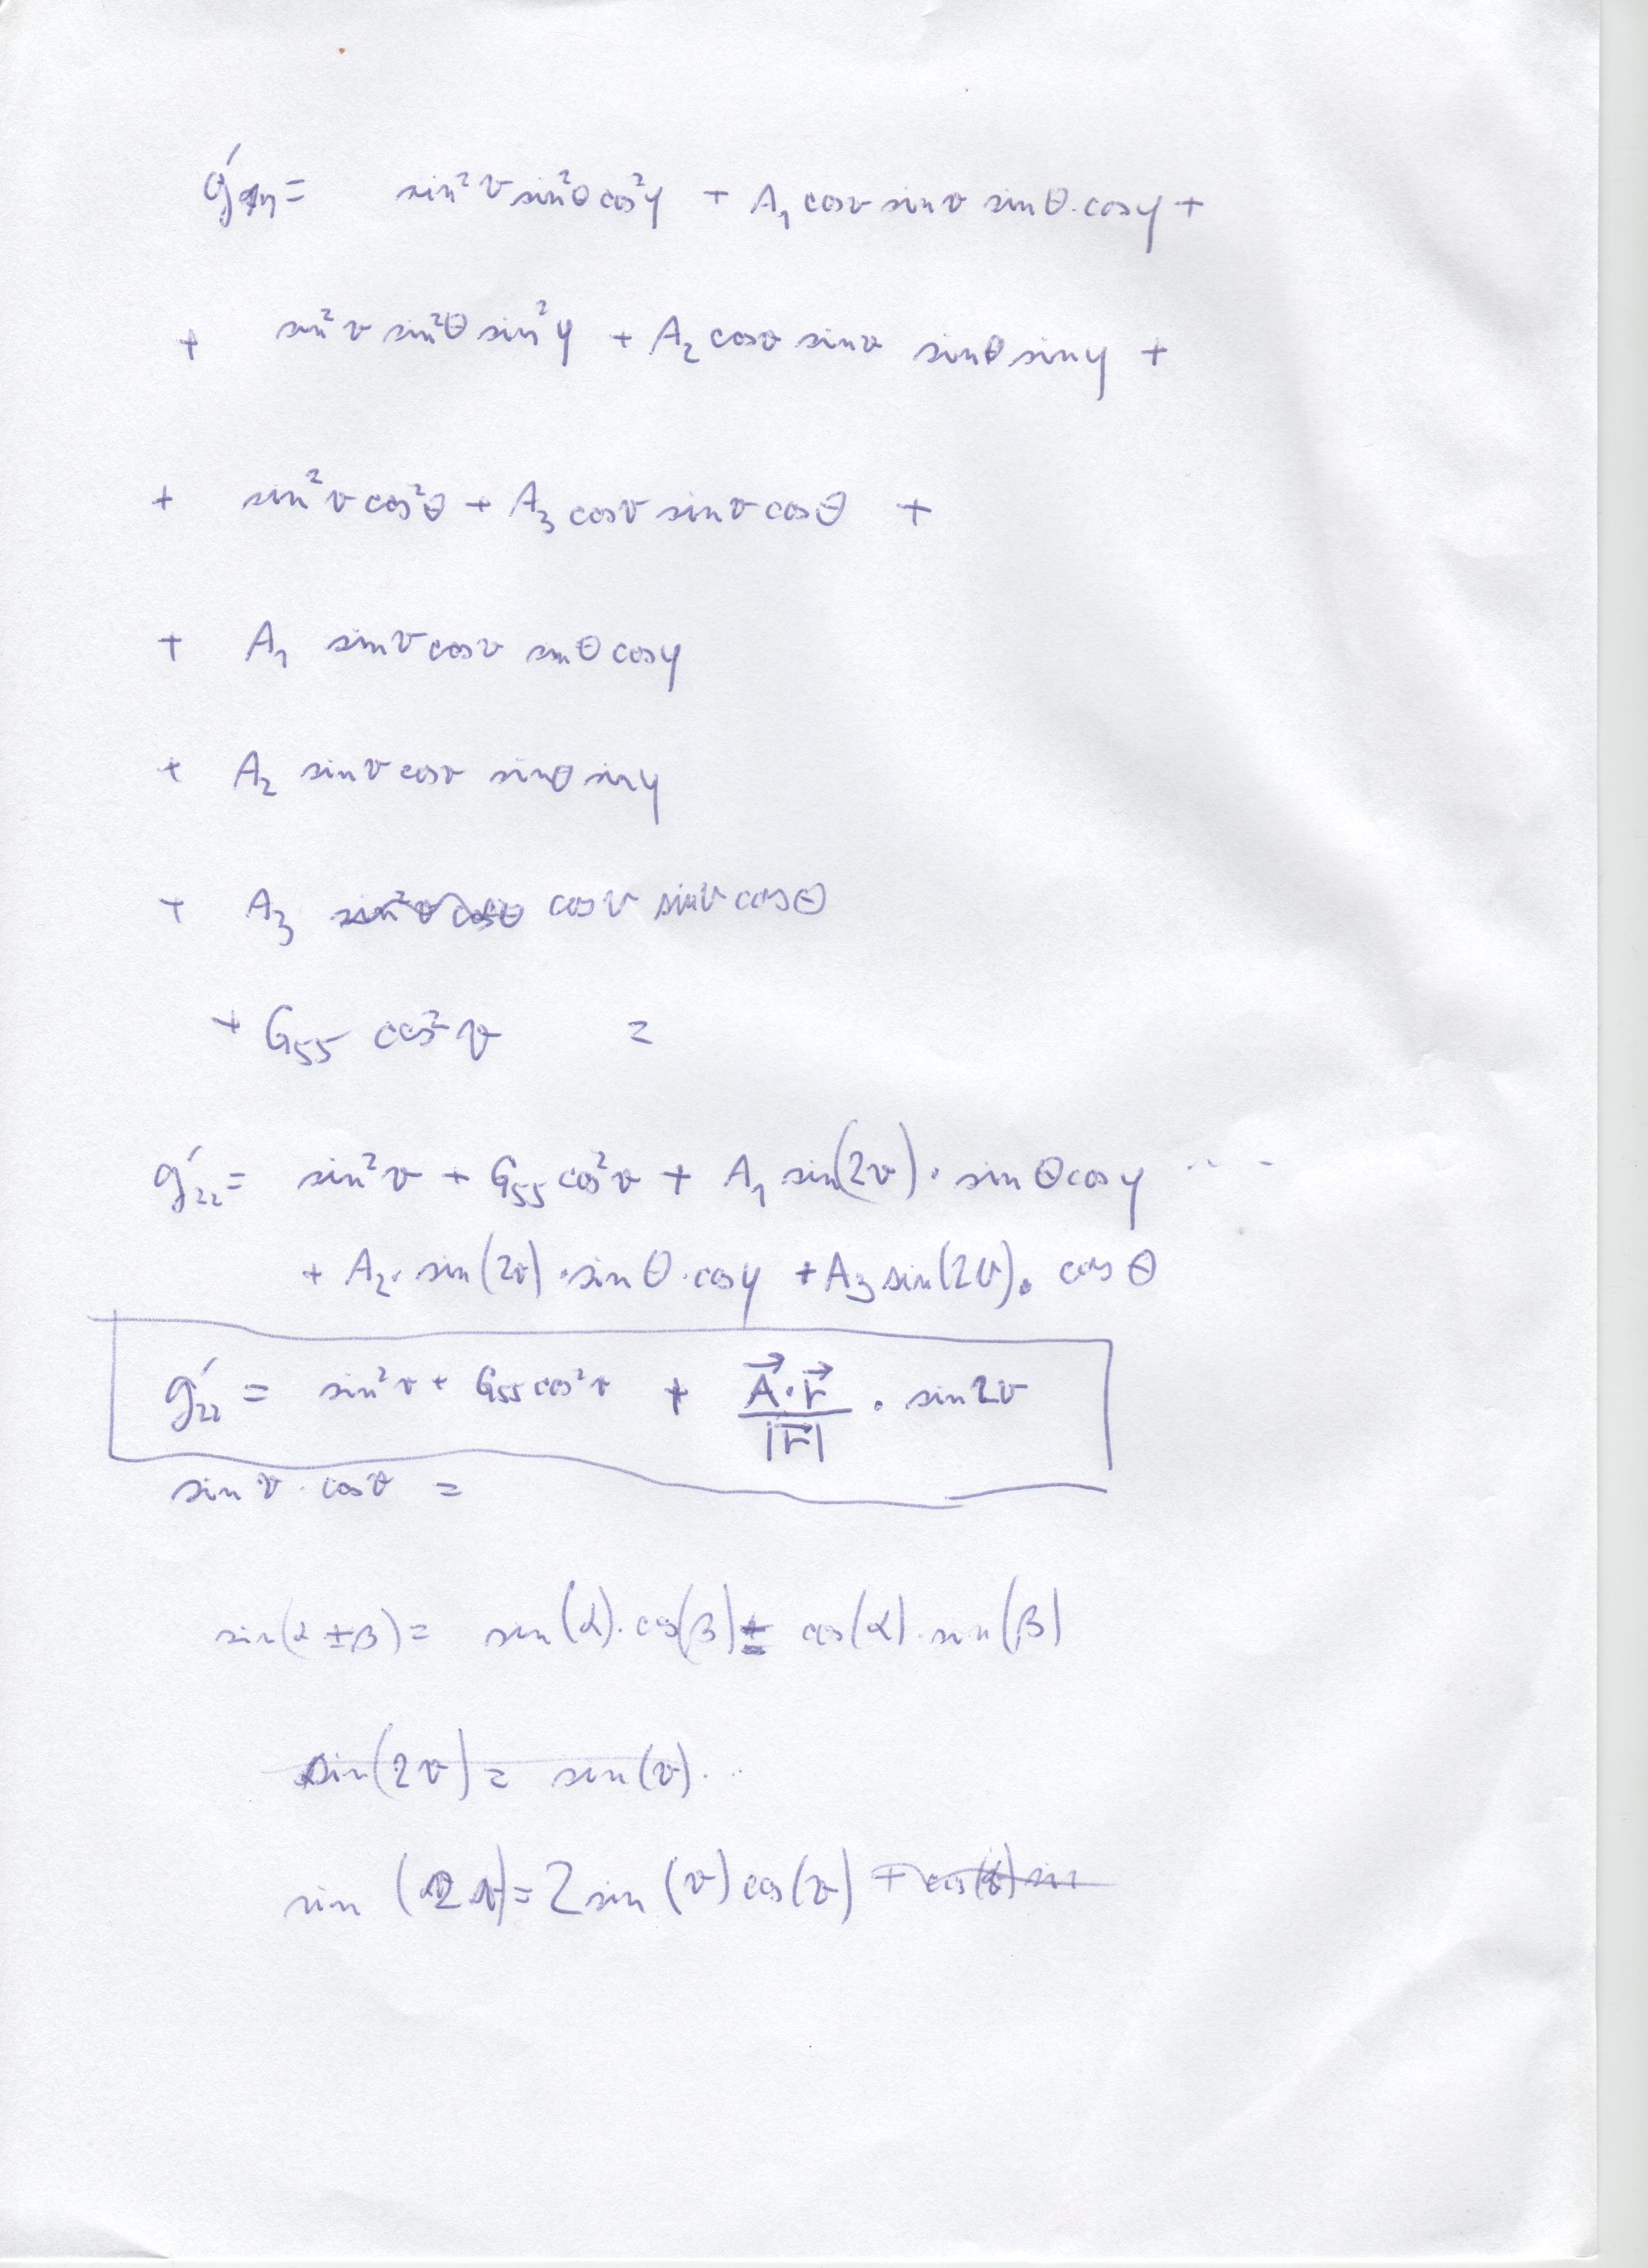 g′₁₁ = sin²v sin²θ cos²φ + A₁ cosv sinv sinθ·cosφ +
+ sin²v sin²θ sin²φ + A₂ cosv sinv sinθ sinφ +
+ sin²v cos²θ + A₃ cosv sinv cosθ +
+ A₁ sinv cosv sinθ cosφ
+ A₂ sinv cosv sinθ sinφ
+ A₃ cosv sinv cosθ
+ G₅₅ cos²v =
g′₂₂ = sin²v + G₅₅ cos²v + A₁ sin(2v)·sinθ cosφ ...
+ A₂·sin(2v)·sinθ·cosφ + A₃ sin(2v)·cosθ
g′₂₂ = sin²v + G₅₅ cos²v + (A⃗·r⃗)/|r⃗| · sin2v
sinv·cosv =
sin(α±β) = sin(α)·cos(β) ± cos(α)·sin(β)
sin(2v) = sin(v)...
sin(2v) = 2sin(v)cos(v)